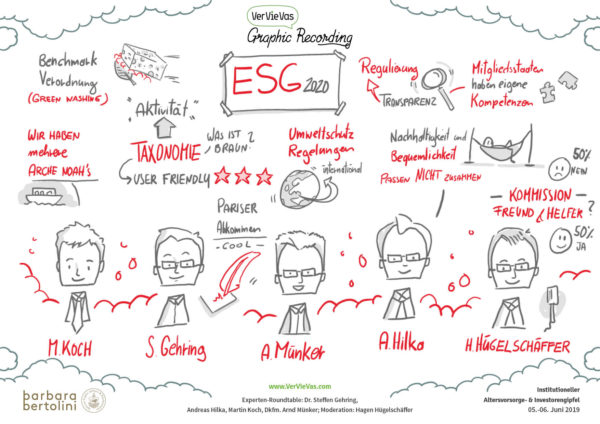 VerVieVas
Graphic Recording
Benchmark
Verordnung
(GREEN WASHING)
ESG 2020
Regulierung
TRANSPARENZ
Mitgliedsstaaten
haben eigene
Kompetenzen
"Aktivität"
WIR HABEN
mehrere
ARCHE NOAH'S
TAXONOMIE
WAS IST
BRAUN?
USER FRIENDLY
UMWELTSCHUTZ
Regelungen
international
Nachhaltigkeit und
BEQUEMLICHKEIT
PASSEN NICHT ZUSAMMEN
50%
NEIN
PARISER
Abkommen
- COOL -
- KOMMISSION -
FREUND & HELFER?
50%
JA
M. KOCH
S. Gehring
A. Münker
A. Hilka
H. HÜGELSCHÄFFER
barbara
bertolini
www.VerVieVas.com
Experten-Roundtable: Dr. Steffen Gehring,
Andreas Hilka, Martin Koch, Dkfm. Arnd Münker; Moderation: Hagen Hügelschäffer
Institutioneller
Altersvorsorge- & Investorengipfel
05.-06. Juni 2019